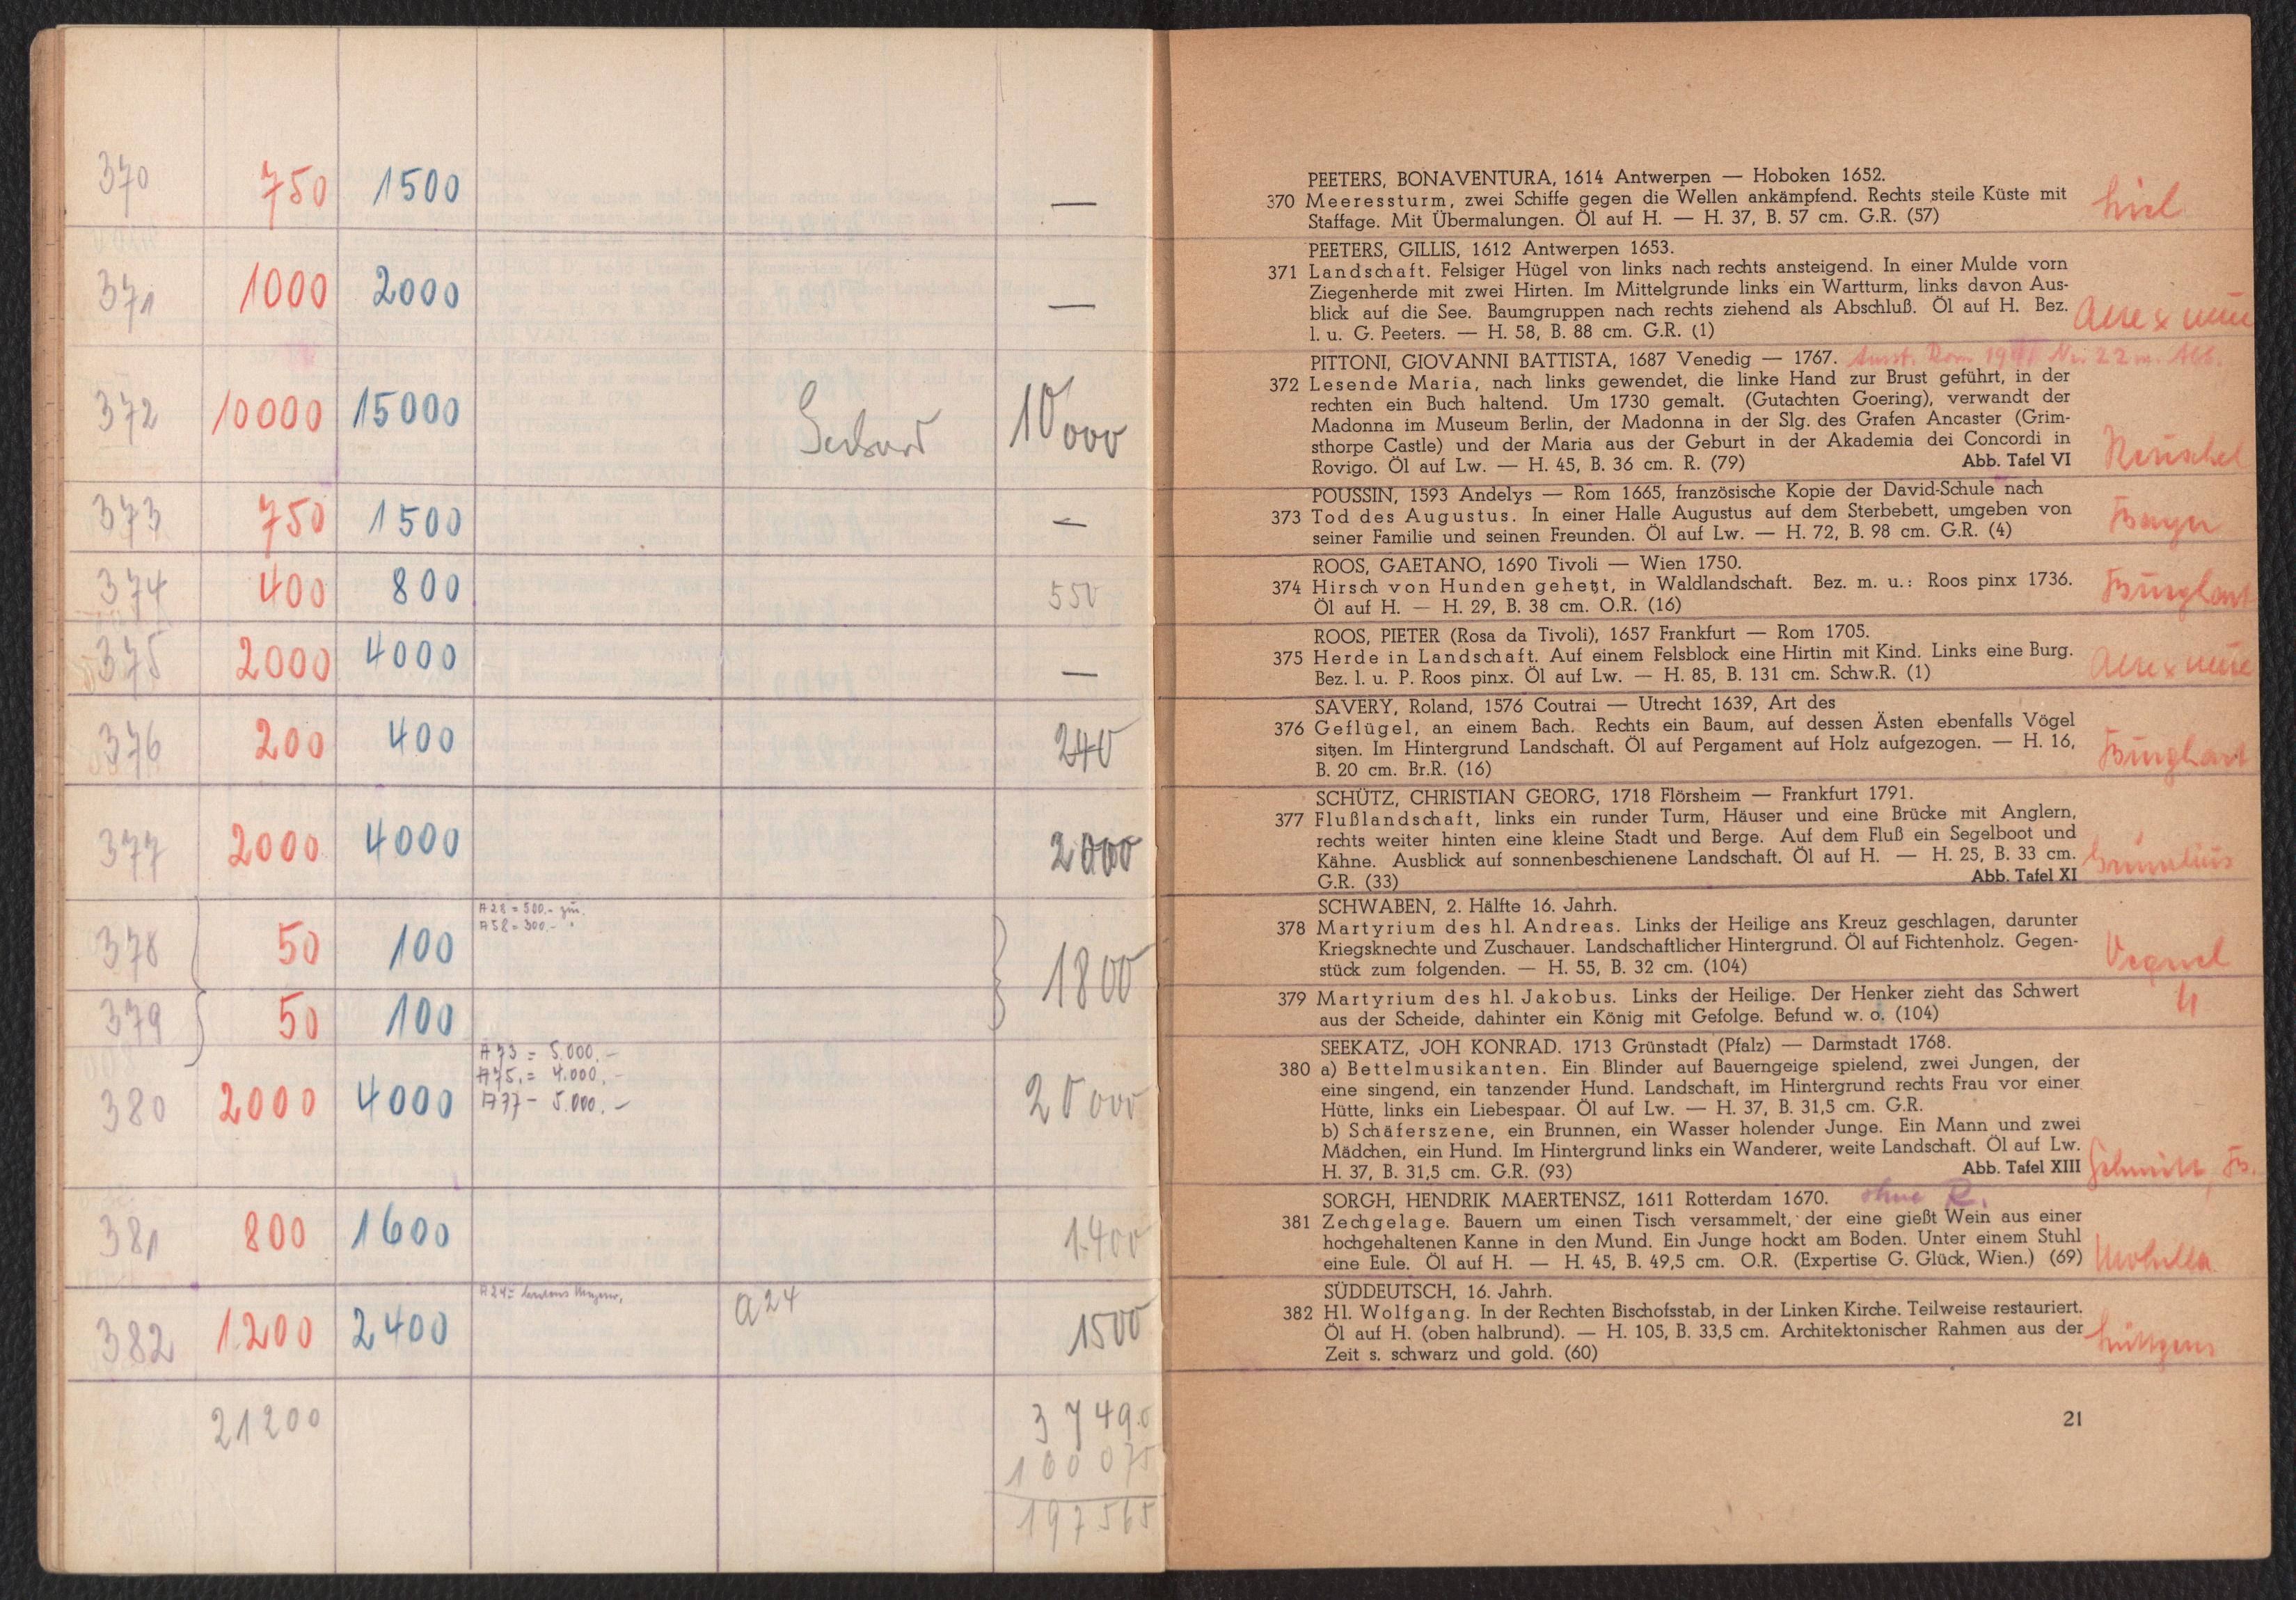 370 750 1500 —
371 1000 2000 —
372 10000 15000 10000
373 750 1500 —
374 400 800 550
375 2000 4000 —
376 200 400 240
377 2000 4000 2000
A28 = 500.-
A58 = 300.-
378 50 100 1800
379 50 100
A73 = 5.000.-
A75 = 4.000.-
A77 - 5.000.-
380 2000 4000 20000
381 800 1600 1.400
A24 =
a24
382 1.200 2400 1500
21200 37490
197565
PEETERS, BONAVENTURA, 1614 Antwerpen — Hoboken 1652.
370 Meeressturm, zwei Schiffe gegen die Wellen ankämpfend. Rechts steile Küste mit
Staffage. Mit Übermalungen. Öl auf H. — H. 37, B. 57 cm. G.R. (57)
PEETERS, GILLIS, 1612 Antwerpen 1653.
371 Landschaft. Felsiger Hügel von links nach rechts ansteigend. In einer Mulde vorn
Ziegenherde mit zwei Hirten. Im Mittelgrunde links ein Wartturm, links davon Aus-
blick auf die See. Baumgruppen nach rechts ziehend als Abschluß. Öl auf H. Bez.
l. u. G. Peeters. — H. 58, B. 88 cm. G.R. (1)
PITTONI, GIOVANNI BATTISTA, 1687 Venedig — 1767.
372 Lesende Maria, nach links gewendet, die linke Hand zur Brust geführt, in der
rechten ein Buch haltend. Um 1730 gemalt. (Gutachten Goering), verwandt der
Madonna im Museum Berlin, der Madonna in der Slg. des Grafen Ancaster (Grim-
sthorpe Castle) und der Maria aus der Geburt in der Akademia dei Concordi in
Rovigo. Öl auf Lw. — H. 45, B. 36 cm. R. (79) Abb. Tafel VI
Reuschel
POUSSIN, 1593 Andelys — Rom 1665, französische Kopie der David-Schule nach
373 Tod des Augustus. In einer Halle Augustus auf dem Sterbebett, umgeben von
seiner Familie und seinen Freunden. Öl auf Lw. — H. 72, B. 98 cm. G.R. (4)
Bayer
ROOS, GAETANO, 1690 Tivoli — Wien 1750.
374 Hirsch von Hunden gehetzt, in Waldlandschaft. Bez. m. u.: Roos pinx 1736.
Öl auf H. — H. 29, B. 38 cm. O.R. (16)
Burghart
ROOS, PIETER (Rosa da Tivoli), 1657 Frankfurt — Rom 1705.
375 Herde in Landschaft. Auf einem Felsblock eine Hirtin mit Kind. Links eine Burg.
Bez. l. u. P. Roos pinx. Öl auf Lw. — H. 85, B. 131 cm. Schw.R. (1)
SAVERY, Roland, 1576 Coutrai — Utrecht 1639, Art des
376 Geflügel, an einem Bach. Rechts ein Baum, auf dessen Ästen ebenfalls Vögel
sitzen. Im Hintergrund Landschaft. Öl auf Pergament auf Holz aufgezogen. — H. 16,
B. 20 cm. Br.R. (16)
Burghart
SCHÜTZ, CHRISTIAN GEORG, 1718 Flörsheim — Frankfurt 1791.
377 Flußlandschaft, links ein runder Turm, Häuser und eine Brücke mit Anglern,
rechts weiter hinten eine kleine Stadt und Berge. Auf dem Fluß ein Segelboot und
Kähne. Ausblick auf sonnenbeschienene Landschaft. Öl auf H. — H. 25, B. 33 cm.
G.R. (33) Abb. Tafel XI
SCHWABEN, 2. Hälfte 16. Jahrh.
378 Martyrium des hl. Andreas. Links der Heilige ans Kreuz geschlagen, darunter
Kriegsknechte und Zuschauer. Landschaftlicher Hintergrund. Öl auf Fichtenholz. Gegen-
stück zum folgenden. — H. 55, B. 32 cm. (104)
379 Martyrium des hl. Jakobus. Links der Heilige. Der Henker zieht das Schwert
aus der Scheide, dahinter ein König mit Gefolge. Befund w. o. (104)
SEEKATZ, JOH KONRAD. 1713 Grünstadt (Pfalz) — Darmstadt 1768.
380 a) Bettelmusikanten. Ein Blinder auf Bauerngeige spielend, zwei Jungen, der
eine singend, ein tanzender Hund. Landschaft, im Hintergrund rechts Frau vor einer
Hütte, links ein Liebespaar. Öl auf Lw. — H. 37, B. 31,5 cm. G.R.
b) Schäferszene, ein Brunnen, ein Wasser holender Junge. Ein Mann und zwei
Mädchen, ein Hund. Im Hintergrund links ein Wanderer, weite Landschaft. Öl auf Lw.
H. 37, B. 31,5 cm. G.R. (93) Abb. Tafel XIII
SORGH, HENDRIK MAERTENSZ, 1611 Rotterdam 1670. ohne R.
381 Zechgelage. Bauern um einen Tisch versammelt, der eine gießt Wein aus einer
hochgehaltenen Kanne in den Mund. Ein Junge hockt am Boden. Unter einem Stuhl
eine Eule. Öl auf H. — H. 45, B. 49,5 cm. O.R. (Expertise G. Glück, Wien.) (69)
SÜDDEUTSCH, 16. Jahrh.
382 Hl. Wolfgang. In der Rechten Bischofsstab, in der Linken Kirche. Teilweise restauriert.
Öl auf H. (oben halbrund). — H. 105, B. 33,5 cm. Architektonischer Rahmen aus der
Zeit s. schwarz und gold. (60)
21